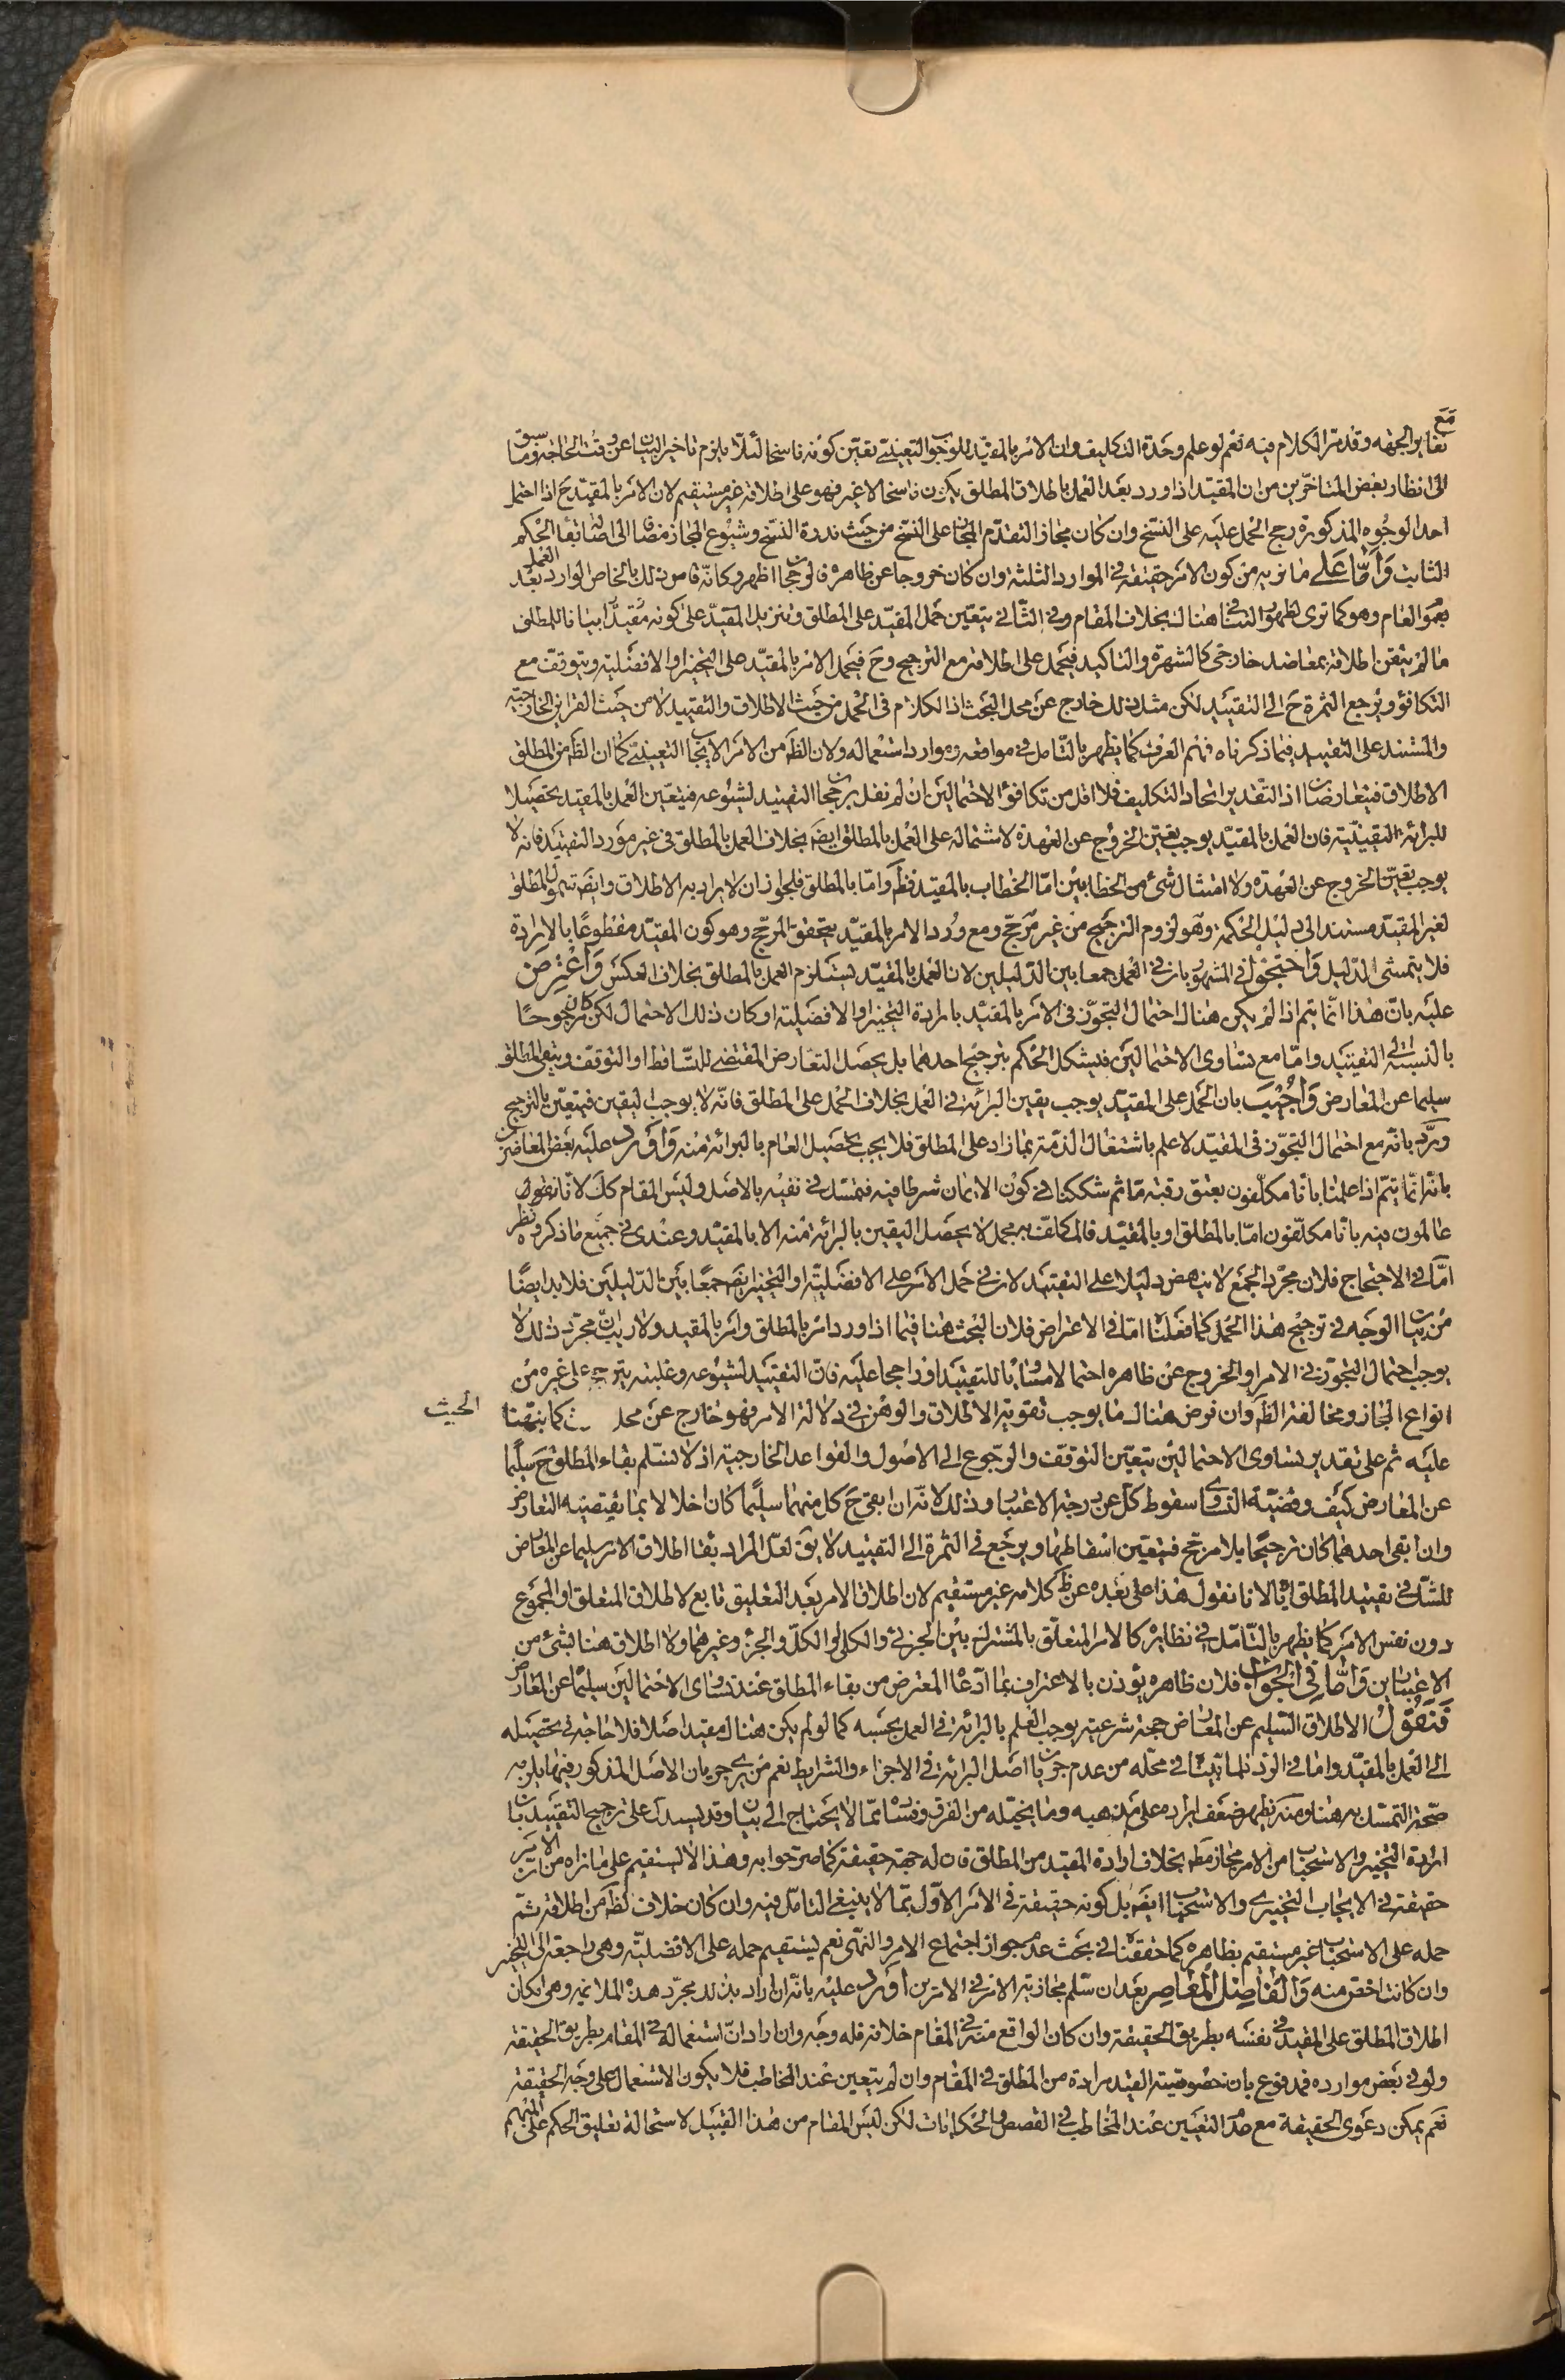 مع
تغاير الجهة وقد مر الكلام فيه نعم لو علم وحدة التكليف وان الامر بالمقيد للوجوب التعييني تعين كونه ناسخا لئلا يلزم تاخير البيان عن وقت الحاجة وما سبق
الى انظار بعض المتاخرين من ان المقيد اذا ورد بعد العمل باطلاق المطلق يكون ناسخا لا غير فهو على اطلاقه غير مستقيم لان الامر بالمقيد ح اذا احتمل
احد الوجوه المذكورة رجح الحمل عليه على النسخ وان كان مجازا لتقدم المجاز على النسخ من حيث ندرة النسخ وشيوع المجاز مضافا الى اصالة بقاء الحكم
الثابت وَأمّا عَلى ما نريه من كون الامر حقيقة في الموارد الثلثة وان كان خروجا عن ظاهره فالرجحان اظهر وكانه قاس ذلك بالخاص الوارد بعد العمل
بعموم العام وهو كما ترى لظهور التنافي هناك بخلاف المقام وفي الثاني يتعين حمل المقيد على المطلق وتنزيل المقيد على كونه مقيدا بيانا للمطلق
ما لم يتقن اطلاقه بمعاضد خارجي كالشهرة والتاكيد فيحمل على اطلاقه مع الترجيح وح فيحمل الامر بالمقيد على التخيير او الافضلية ويتوقف مع
التكافؤ ويرجع الثمرة ح الى التقييد لكن مثل ذلك خارج عن محل البحث اذ الكلام في الحمل من حيث الاطلاق والتقييد لا من حيث القراين الخارجية
والمستند على التقييد فيما ذكرناه فهم العرف كما يظهر بالتامل في مواقعه وموارد استعماله ولان الظ من الامر الايجاب التعييني كما ان الظ من المطلق
الاطلاق فيتعارضان اذ التقدير اتحاد التكليف فلا اقل من تكافؤ الاحتمالين ان لم نقل برجحان التقييد لشيوعه فيتعين العمل بالمقيد تحصيلا
للبرائة اليقينية فان العمل بالمقيد يوجب يقين الخروج عن العهدة لاشتماله على العمل بالمطلق ايضا بخلاف العمل بالمطلق في غير مورد التقييد فانه لا
يوجب يقين الخروج عن العهدة ولا امتثال شئ من الخطابين اما الخطاب بالمقيد فظ واما بالمطلق فلجواز ان لا يراد به الاطلاق وايضا شمول المطلق
لغير المقيد مستند الى دليل الحكمة وهو لزوم الترجيح من غير مرجح ومع ورود الامر بالمقيد يتحقق المرجح وهو كون المقيد مقطوعا بالارادة
فلا يتمشى الدليل وَاحتجّوا في المشهور بان في العمل جمعا بين الدليلين لان العمل بالمقيد يستلزم العمل بالمطلق بخلاف العكس وَاُعتُرِضَ
عليه بان هذا انما يتم اذا لم يكن هناك احتمال التجوز في الامر بالمقيد بارادة التخيير او الافضلية او كان ذلك الاحتمال لكن كان مرجوحا
بالنسبة الى التقييد واما مع تساوى الاحتمالين فيشكل الحكم بترجيح احدهما بل يحصل التعارض المقتضي للتساقط او التوقف ويبقى المطلق
سليما عن المعارض وَاُجيبَ بان الحمل على المقيد يوجب يقين البرائة في العمل بخلاف الحمل على المطلق فانه لا يوجب اليقين فيتعين بالترجيح
ورد بانه مع احتمال التجوز في المقيد لا علم باشتغال الذمة بما زاد على المطلق فلا يجب تحصيل العلم بالبرائة منه وَاورد عليه بعض المعاصرين
بانه انما يتم اذا علمنا بانا مكلفون بعتق رقبة ما ثم شككنا في كون الايمان شرطا فيه فنتمسك في نفيه بالاصل وليس المقام كك لانا نقول
عالمون فيه بانا مكلفون اما بالمطلق او بالمقيد فالمكلف به مجمل لا يحصل اليقين بالبرائة منه الا بالمقيد وعندى في جميع ما ذكروه نظر
امّا في الاحتجاج فلان مجرد الجمع لا ينهض دليلا على التقييد لان في حمل الامر على الافضلية او التخيير ايضا جمعا بين الدليلين فلا بد ايضا
من بيان الوجه في ترجيح هذا الحمل كما فعلنا اما في الاعتراض فلان البحث هنا فيما اذا ورد امر بالمطلق وامر بالمقيد ولا ريب ان مجرد ذلك لا
يوجب احتمال التجوز في الامر او الخروج عن ظاهره احتمالا مساويا للتقييد او راجحا عليه فان التقييد لشيوعه وغلبته يترجح على غيره من
انواع المجاز ومخالفة الظ وان فرض هناك ما يوجب تقوية الاطلاق والوهن في دلالة الامر فهو خارج عن محل كما نبهنا
البحث
عليه ثم على تقدير تساوى الاحتمالين يتعين التوقف والرجوع الى الاصول والقواعد الخارجية اذ لا نسلم بقاء المطلق ح سليما
عن المعارض كيف وقضية التساوى سقوط كل عن درجة الاعتبار وذلك لانه ان ابقى ح كل منهما سليما كان اخلالا بما يقتضيه التعارض
وان ابقى احدهما كان ترجيحا بلا مرجح فيتعين اسقاطهما ويرجع في الثمرة الى التقييد لا يق لعل المراد بقاء اطلاق الامر سليما عن المعارض
للشك في تقييد المطلق به لانا نقول هذا على بعده عن ظ كلامه غير مستقيم لان اطلاق الامر بعد التعليق تابع لاطلاق المتعلق او المجموع
دون نفس الامر كما يظهر بالتامل في نظايره كالامر المتعلق بالمشترك بين الجزئي والكلي او الكل والجزء وغيرهما ولا اطلاق هنا لشئ من
الاعتبارين وَامّا في الجَوابِ فلان ظاهره يؤذن بالاعتراف بما ادعاه المعترض من بقاء المطلق عند تساوى الاحتمالين سليما عن المعارض
فَنَقولُ الاطلاق السليم عن المعارض حجة شرعية يوجب العلم بالبرائة في العمل بحسبه كما لو لم يكن هناك مقيد اصلا فلا حاجة في تحصيله
الى العمل بالمقيد واما في الرد فلما بينا في محله من عدم جريان اصل البرائة في الاجزاء والشرايط نعم من يرى جريان الاصل المذكور فيها يلزمه
صحة التمسك به هنا ومنه يظهر ضعف ايراده على مذهبه وما يخيله من الفرق وفساده مما لا يحتاج الى بيان وقد يستدل على ترجيح التقييد بان
ارادة التخيير والاستحباب من الامر مجاز مط بخلاف ارادة المقيد من المطلق فان له جهة حقيقة كما صرحوا به وهذا لا يستقيم على ما نراه من ان الامر
حقيقة في الايجاب التخييري والاستحباب ايضا بل كونه حقيقة في الامر الاول مما لا ينبغي التامل فيه وان كان خلاف الظ من اطلاقه ثم
حمله على الاستحباب غير مستقيم بظاهره كما حققنا في بحث عدم جواز اجتماع الامر والنهى نعم يستقيم حمله على الافضلية وهي راجعة الى التخيير
وان كانت اخص منه وَالفاضِل المُعاصِر بعد ان سلم مجازية الامر في الامرين اورد عليه بانه ان اراد بذلك مجرد هذه الملازمة وهي امكان
اطلاق المطلق على المقيد في نفسه بطريق الحقيقة وان كان الواقع منه في المقام خلافه فله وجه وان اراد ان استعماله في المقام بطريق الحقيقة
ولو في بعض موارده فمدفوع بان خصوصية القيد مرادة من المطلق في المقام وان لم يتعين عند المخاطب فلا يكون الاستعمال على وجه الحقيقة
نعم يمكن دعوى الحقيقة مع عدم التعيين عند المخاطب في القصص والحكايات لكن ليس المقام من هذا القبيل لاستحالة تعليق الحكم على المبهم